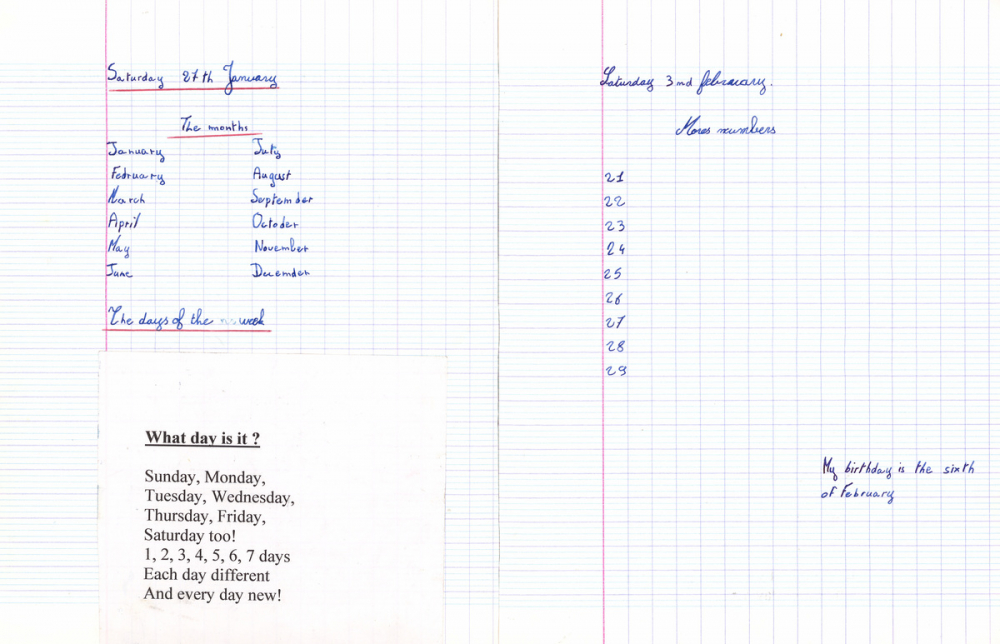 Saturday 27th January
The months
January July
February August
March September
April October
May November
June December
The days of the week
What day is it ?
Sunday, Monday,
Tuesday, Wednesday,
Thursday, Friday,
Saturday too!
1, 2, 3, 4, 5, 6, 7 days
Each day different
And every day new!
Saturday 3nd february.
Mores numbers
21
22
23
24
25
26
27
28
29
My birthday is the sixth
of February